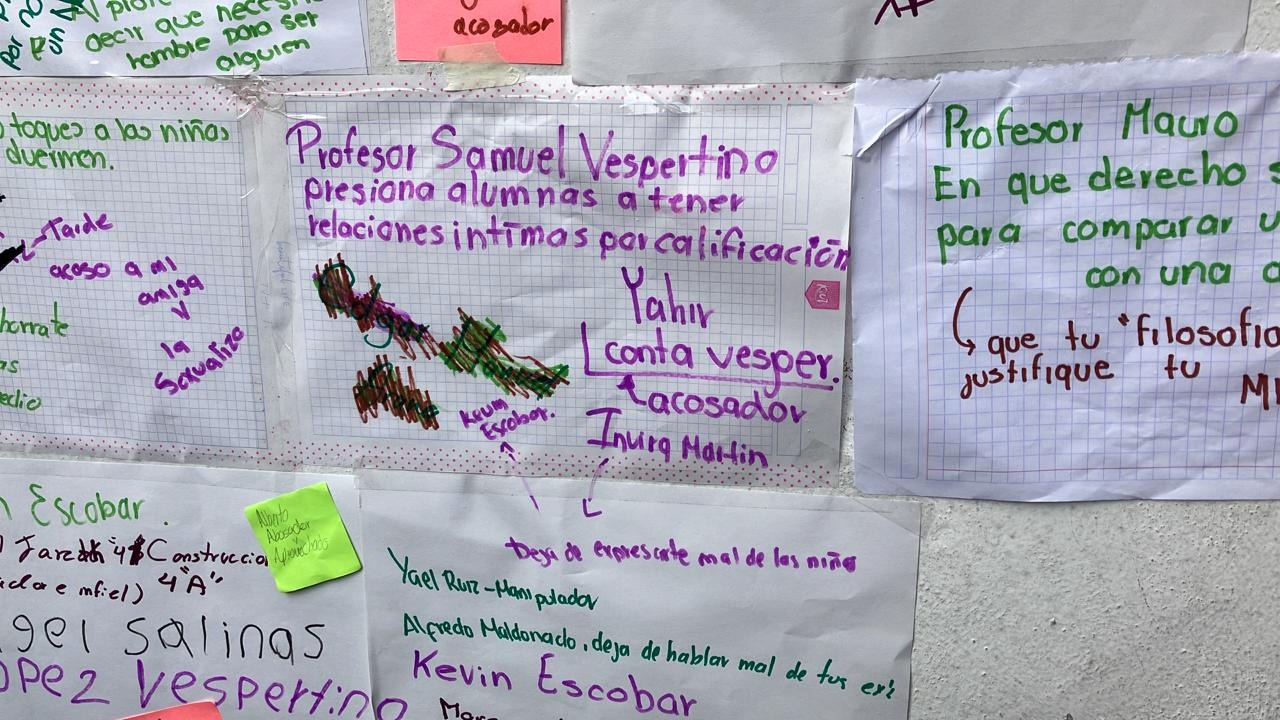 decir que neces
hombre para ser
alguien
acosador
toques a las niñas
duermen.
Tarde
acoso a mi
amiga
y
la
Sexualizo
Profesor Samuel Vespertino
presiona alumnas a tener
relaciones intimas por calificación
Yahir
conta vesper.
acosador
Kevin
Escobar.
Martin
Profesor Mauro
En que derecho s
para comparar u
con una
que tu "filosofia
justifique tu
Escobar.
Construccion
4"A"
gel Salinas
opez Vespertino
Alberto
Abusador
y
Aprovechado
Deja de expresarte mal de las niñas
Yael Ruiz-Manipulador
Alfredo Maldonado, deja de hablar mal de tus ex's
Kevin Escobar